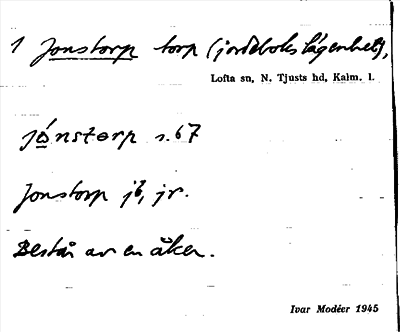 1 Jonstorp torp (jordebokslägenhet),
Lofta sn, N. Tjusts hd, Kalm. l.
jónstorp s. 67
Jonstorp jb, jr.
Består av en åker.
Ivar Modéer 1945